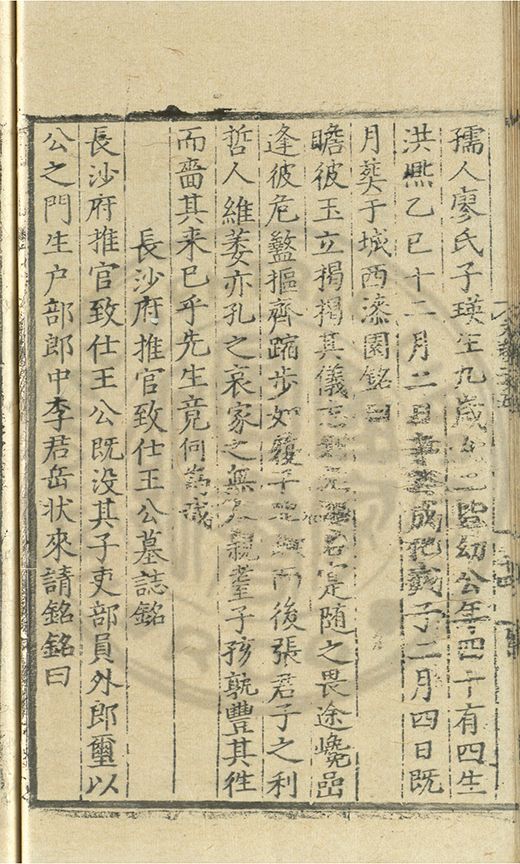 孺人廖氏子瑛生九歲女二皆幼公年四十有四生
洪熈乙巳十二月二日卒成化戊子二月四日既
月葬于城西漆園銘曰
瞻彼玉立揭揭其儀名寔隨之畏途巉嵒
逢彼危摳齊蹜步如而後張君子之利
哲人維萎亦孔之哀家之無人親耋子孩孰豐其徃
而嗇其来巳乎先生竟何為哉
長沙府推官致仕王公墓誌銘
長沙府推官致仕王公既没其子吏部員外郎璽以
公之門生户部郎中李君岳状來請銘銘曰